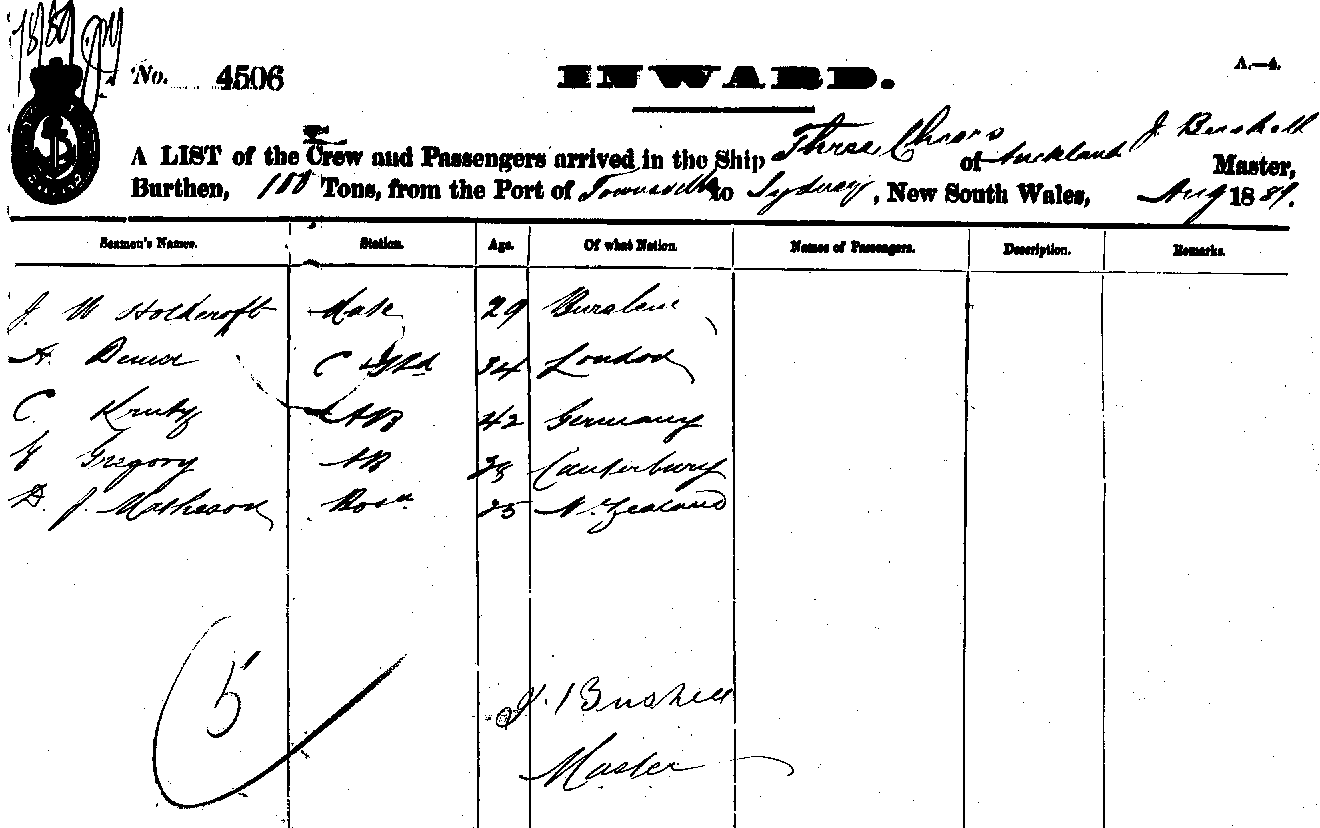 No. 4506 INWARD. A.—4.
A LIST of the Crew and Passengers arrived in the Ship Three Cheers of Auckland J. Bushell Master,
Burthen, 100 Tons, from the Port of Townsville to Sydney, New South Wales, Aug 1889.
Seamen's Names. Station. Age. Of what Nation. Names of Passengers. Description. Remarks.
J. W Holdcroft Mate 29 Burslem
A. C Std 34 London
C Krutz AB 42 Germany
Gregory AB 38 Canterbury
D. J. Matheson Bosn 25 N. Zealand
5
J. Bushell
Master